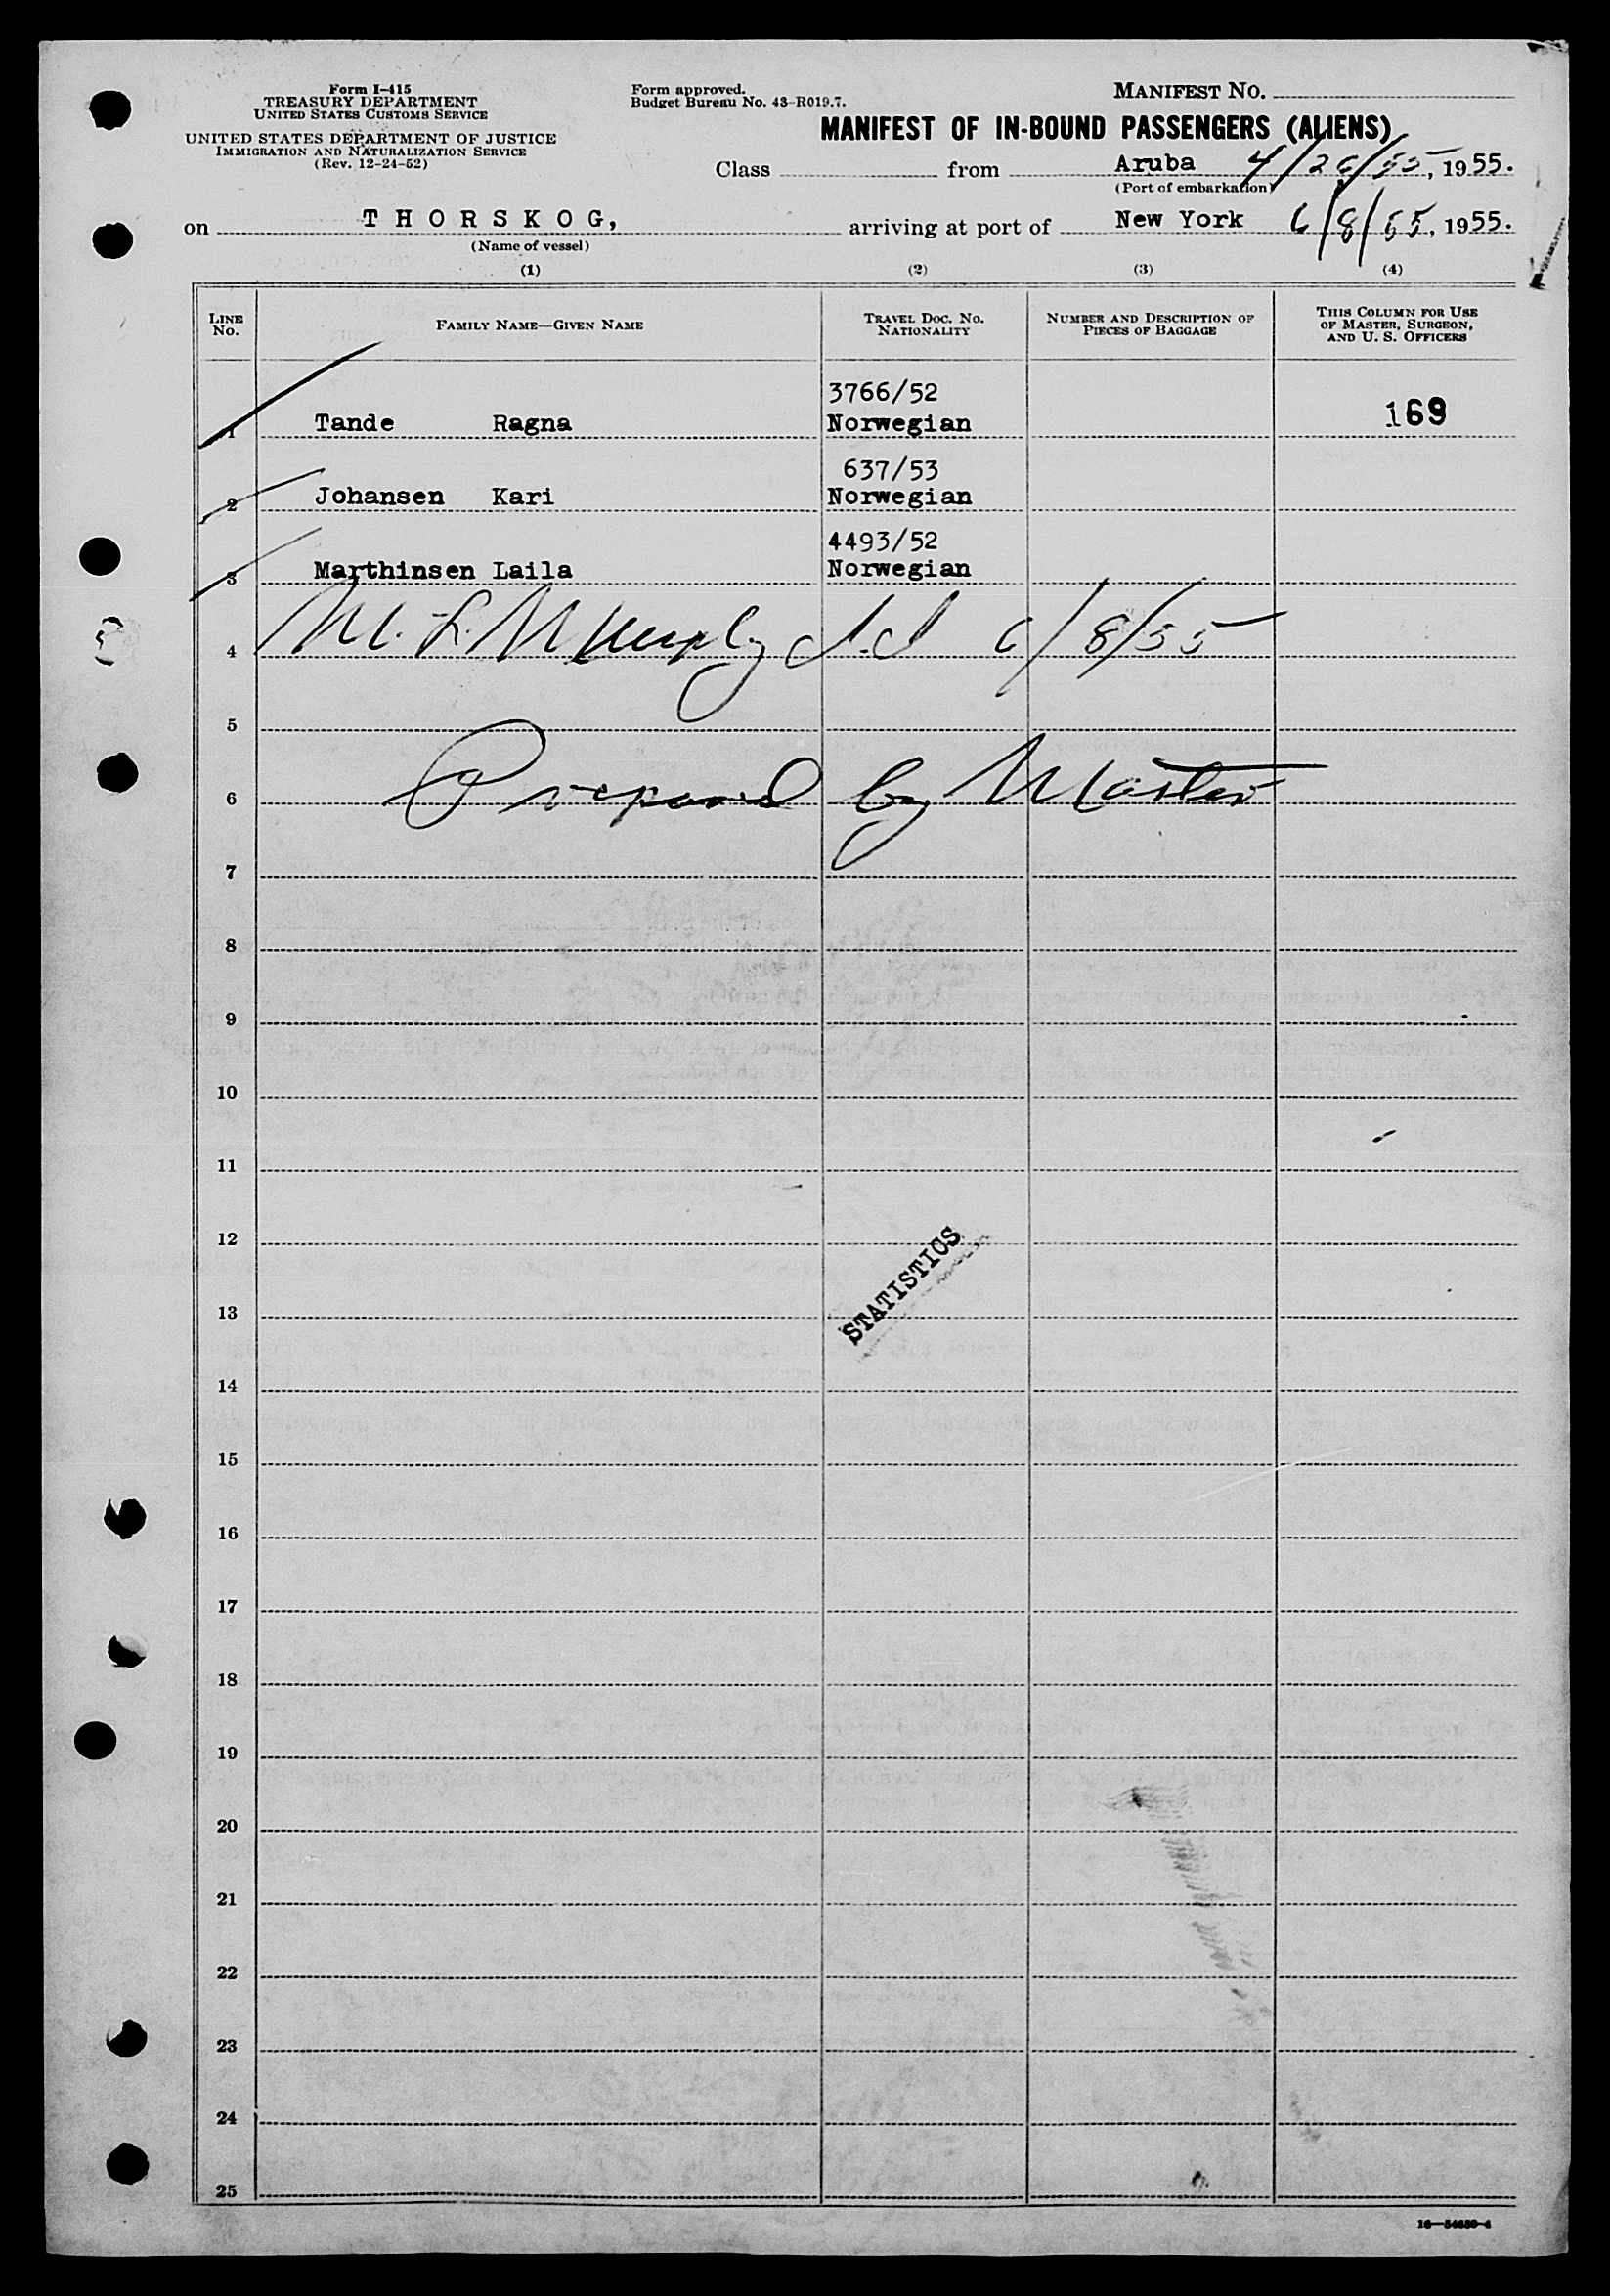 Form I-415
TREASURY DEPARTMENT
UNITED STATES CUSTOMS SERVICE
UNITED STATES DEPARTMENT OF JUSTICE
IMMIGRATION AND NATURALIZATION SERVICE
(Rev. 12-24-52)
Form approved.
Budget Bureau No. 43-R019.7.
MANIFEST NO.
MANIFEST OF IN-BOUND PASSENGERS (ALIENS)
Class from Aruba 4/26/55, 1955.
(Port of embarkation)
on THORSKOG, arriving at port of New York 6/8/55, 1955.
(Name of vessel)
(1) (2) (3) (4)
LINE NO. FAMILY NAME—GIVEN NAME TRAVEL DOC. NO. NATIONALITY NUMBER AND DESCRIPTION OF PIECES OF BAGGAGE THIS COLUMN FOR USE OF MASTER, SURGEON, AND U. S. OFFICERS
3766/52
1 Tande Ragna Norwegian 169
637/53
2 Johansen Kari Norwegian
4493/52
3 Marthinsen Laila Norwegian
4 M. L. 6/8/55
5
6 Prepared by Master
7
8
9
10
11
12
STATISTICS
13
14
15
16
17
18
19
20
21
22
23
24
25